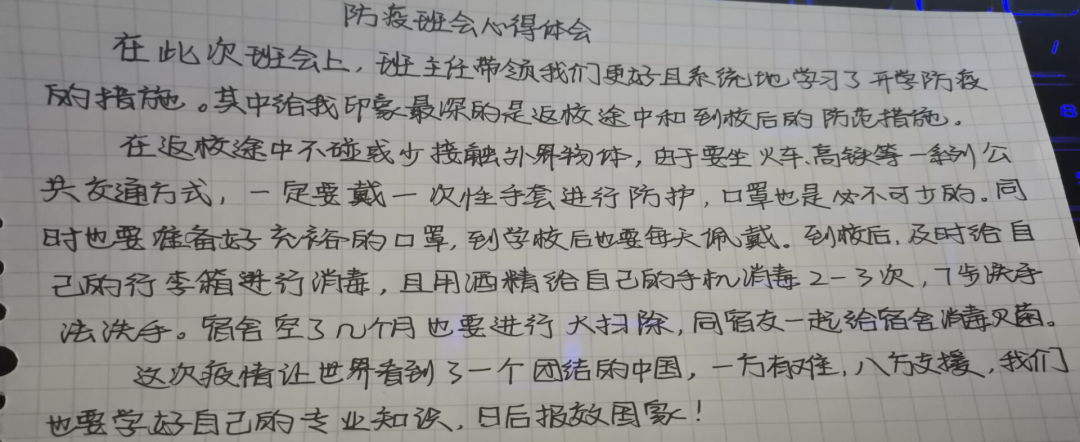 防疫班会心得体会
在此次班会上，班主任带领我们更好且系统地学习了开学防疫
的措施。其中给我印象最深的是返校途中和到校后的防范措施。
在返校途中不碰或少接触外界物体，由于要坐火车、高铁等一系列公
共交通方式，一定要戴一次性手套进行防护，口罩也是必不可少的。同
时也要准备好充裕的口罩，到学校后也要每天佩戴。到校后，及时给自
己的行李箱进行消毒，且用酒精给自己的手机消毒2-3次，7步洗手
法洗手。宿舍空了几个月也要进行大扫除，同宿友一起给宿舍消毒灭菌。
这次疫情让世界看到了一个团结的中国，一方有难，八方支援，我们
也要学好自己的专业知识，日后报效国家！